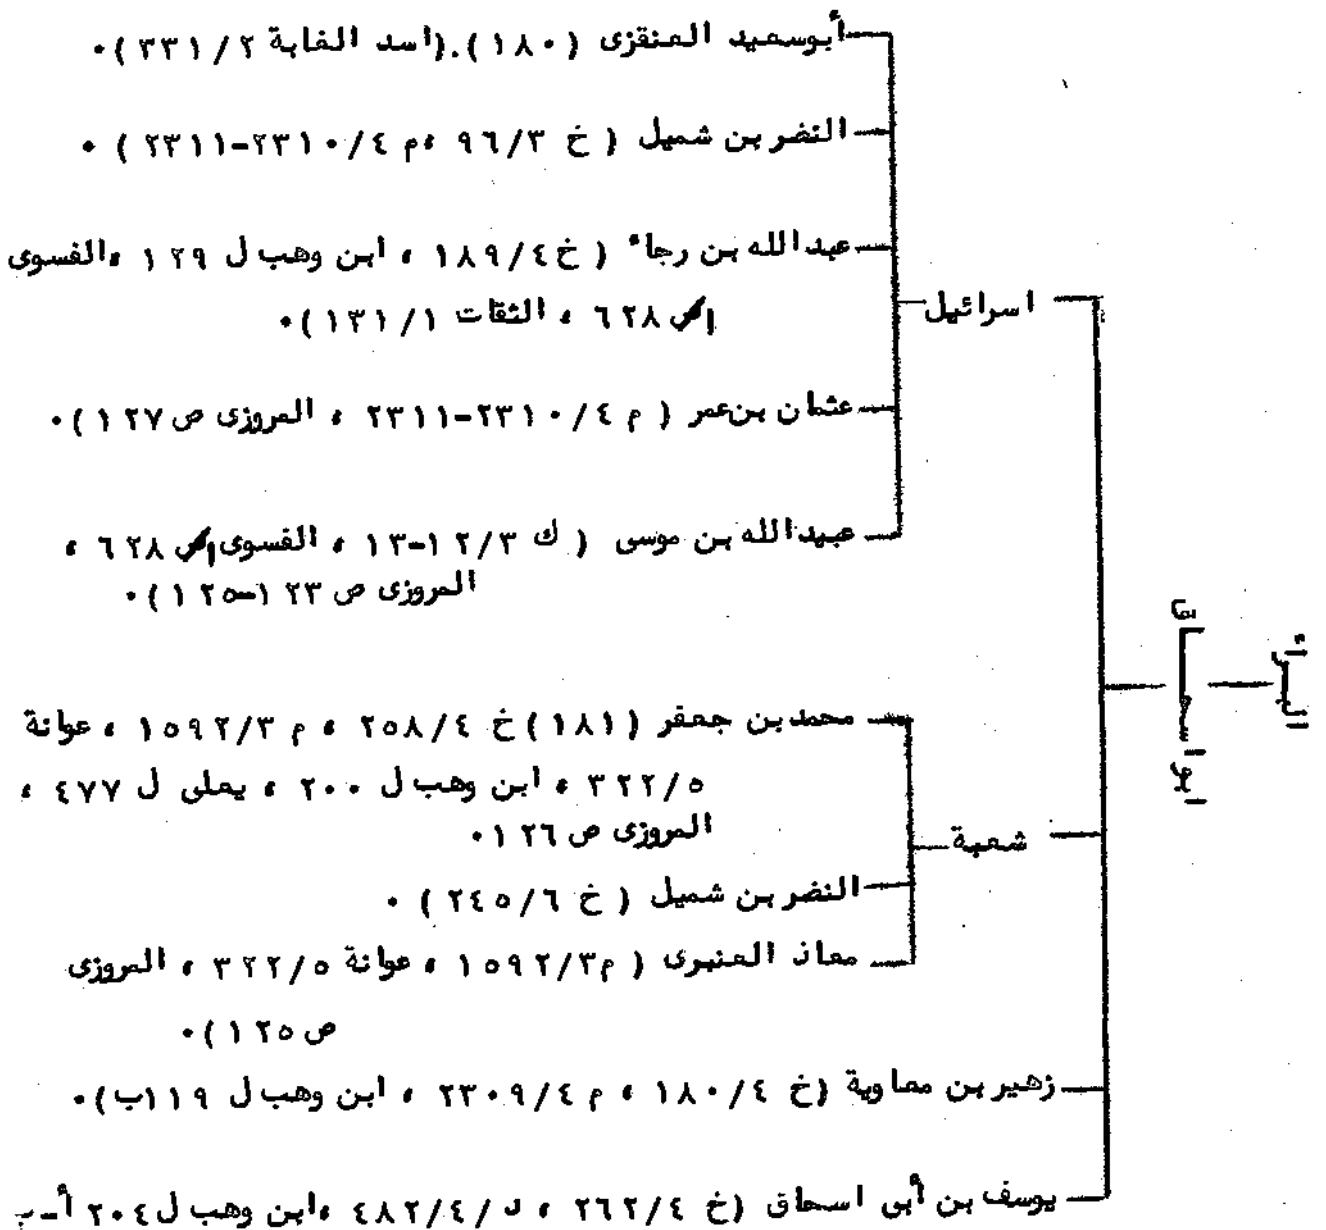 أبوسعيد العنقزى ( ١٨٠ ).(اسد الغابة ٣٣١/٢ )٠
النضر بن شميل ( خ ٩٦/٣ ،م ٢٣١٠/٤-٢٣١١ ) ٠
عبد الله بن رجاء ( خ ١٨٩/٤ ، ابن وهب ل ١٢٩ ،الفسوى
٦٢٨ ، الثقات ١٣١/١ )٠
اسرائيل
عثمان بن عمر ( م ٢٣١٠/٤-٢٣١١ ، المروزى ص ١٢٧ )٠
عبيد الله بن موسى ( ك ١٢/٣-١٣ ، الفسوى ٦٢٨ ،
المروزى ص ١٢٣-١٢٥ )٠
البرأ
ابو اسحاق
محمد بن جعفر ( ١٨١ ) خ ٢٥٨/٤ ، م ١٥٩٢/٣ ، عوانة
٣٢٢/٥ ، ابن وهب ل ٢٠٠ ، يعلى ل ٤٧٧ ،
المروزى ص ١٢٦ ٠
شعبة
النضر بن شميل ( خ ٢٤٥/٦ ) ٠
معاذ العنبرى ( م ١٥٩٢/٣ ، عوانة ٣٢٢/٥ ، المروزى
ص ١٢٥ )٠
زهير بن معاوية (خ ١٨٠/٤ ، م ٢٣٠٩/٤ ، ابن وهب ل ١١٩ب)٠
يوسف بن أبى اسحاق (خ ٢٦٢/٤ ، د /٤٨٢/٤ ،ابن وهب ل ٢٠٤ أ-ب